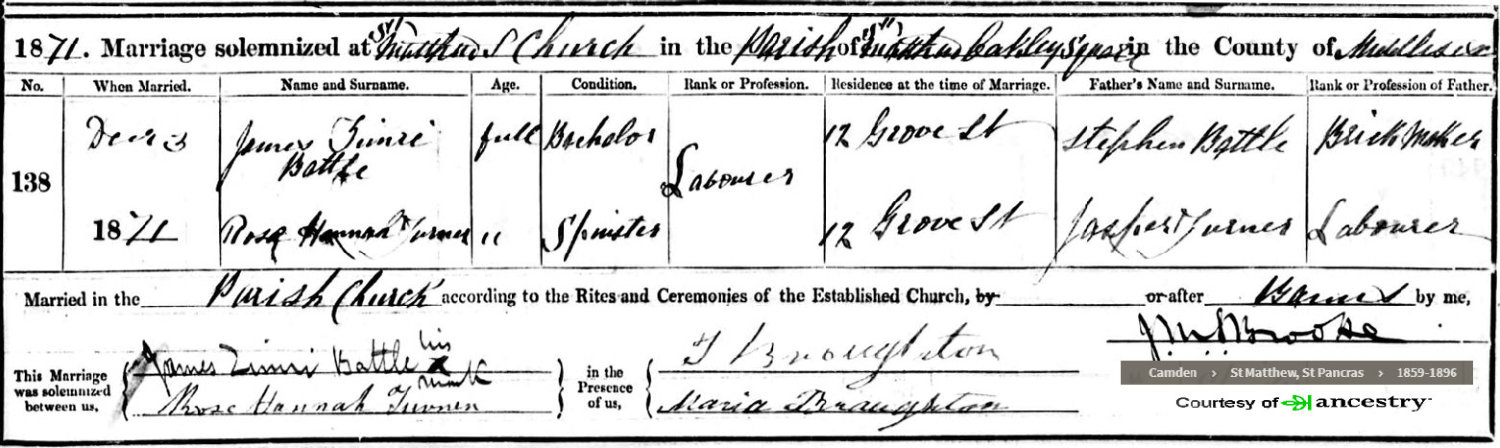 1871. Marriage solemnized at St Matthew's Church in the Parish of St Matthew Oakley Square in the County of Middlesex
No. When Married. Name and Surname. Age. Condition. Rank or Profession. Residence at the time of Marriage. Father's Name and Surname. Rank or Profession of Father.
138 Decr 3 1871 James Zimri Battle full Bachelor Labourer 12 Grove St Stephen Battle Brick Maker
Rose Hannah Turner " Spinster 12 Grove St Jasper Turner Labourer
Married in the Parish Church according to the Rites and Ceremonies of the Established Church, by or after Banns by me,
This Marriage was solemnized between us, James Zimri Battle his x mark in the Presence of us, T Broughton
Rose Hannah Turner Maria Broughton
Camden › St Matthew, St Pancras › 1859-1896
Courtesy of ancestry